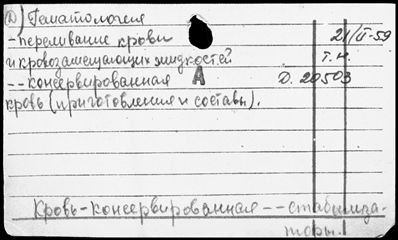 (D) Гематология
- переливание крови 21/II-59
и кровозамещающих жидкостей т.н.
-- консервированная А D. 20503
кровь (приготовления и составы).
Кровь-консервированная -- стабилиза-
торы.